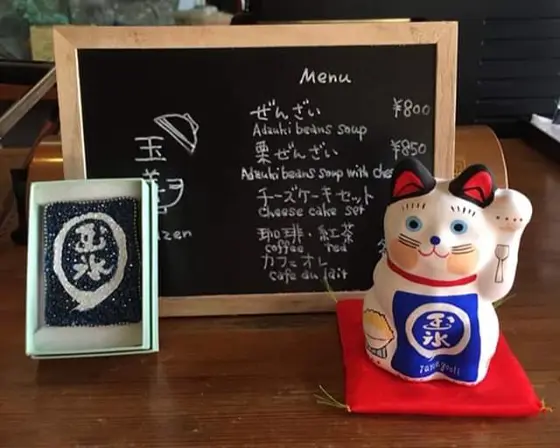 Menu
ぜんざい ¥800
Adzuki beans soup
栗ぜんざい ¥850
Adzuki beans soup with che
チーズケーキセット
cheese cake set
珈琲・紅茶
coffee red
カフェオレ
cafe du lait
玉
zen
玉氷
玉
氷